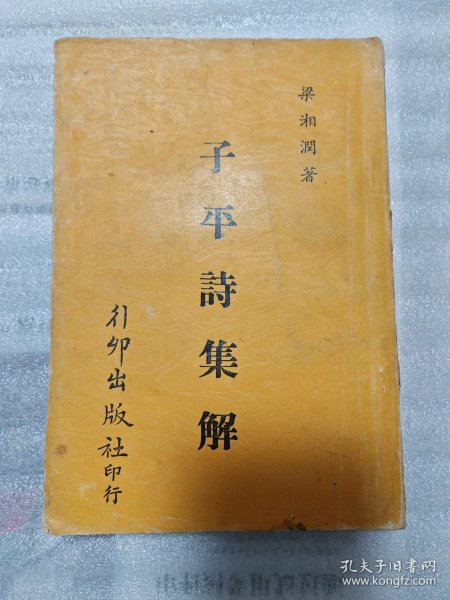 梁湘潤著
子平詩集解
行卯出版社印行
孔夫子旧书网
www.kongfz.com